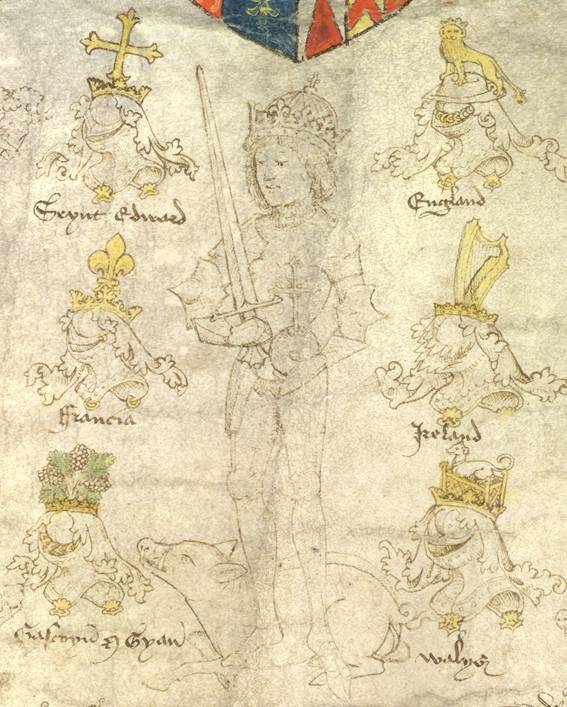 Seynt Edward
England
Francia
Ireland
Gascoyn & Gyan
Walys